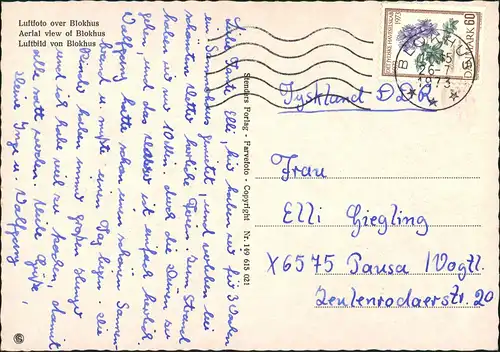 Luftfoto over Blokhus
Aerial view of Blokhus
Luftbild von Blokhus
Liebe Tante Elli, hier haben wir für 3 Wochen
ein Sommerhaus gemietet, und verleben bei
schönstem Wetter herrliche Ferien. Zum Strand
haben wir nur 10 Min. durch die Dünen zu
gehen, und das Wasser ist einfach herrlich.
Walfpeng hatte schon einen schönen Sonnen-
brand u. mußte einen Tag liegen. Die
Kinder haben immer großen Hunger
und ich habe viel zu kochen, damit
alle satt werden. Viele Grüße,
Deine Inge u. Walfpeng
Stenders Forlag - Farvefoto - Copyright Nr. 149 615 021
DET FYNSKE HAVESELSKAB
1973
DANMARK 60
BLOKHUS
26-7
1973
Tyskland DDR
Frau
Elli Giegling
X6575 Pausa /Vogtl.
Zeulenrodaerstr. 20